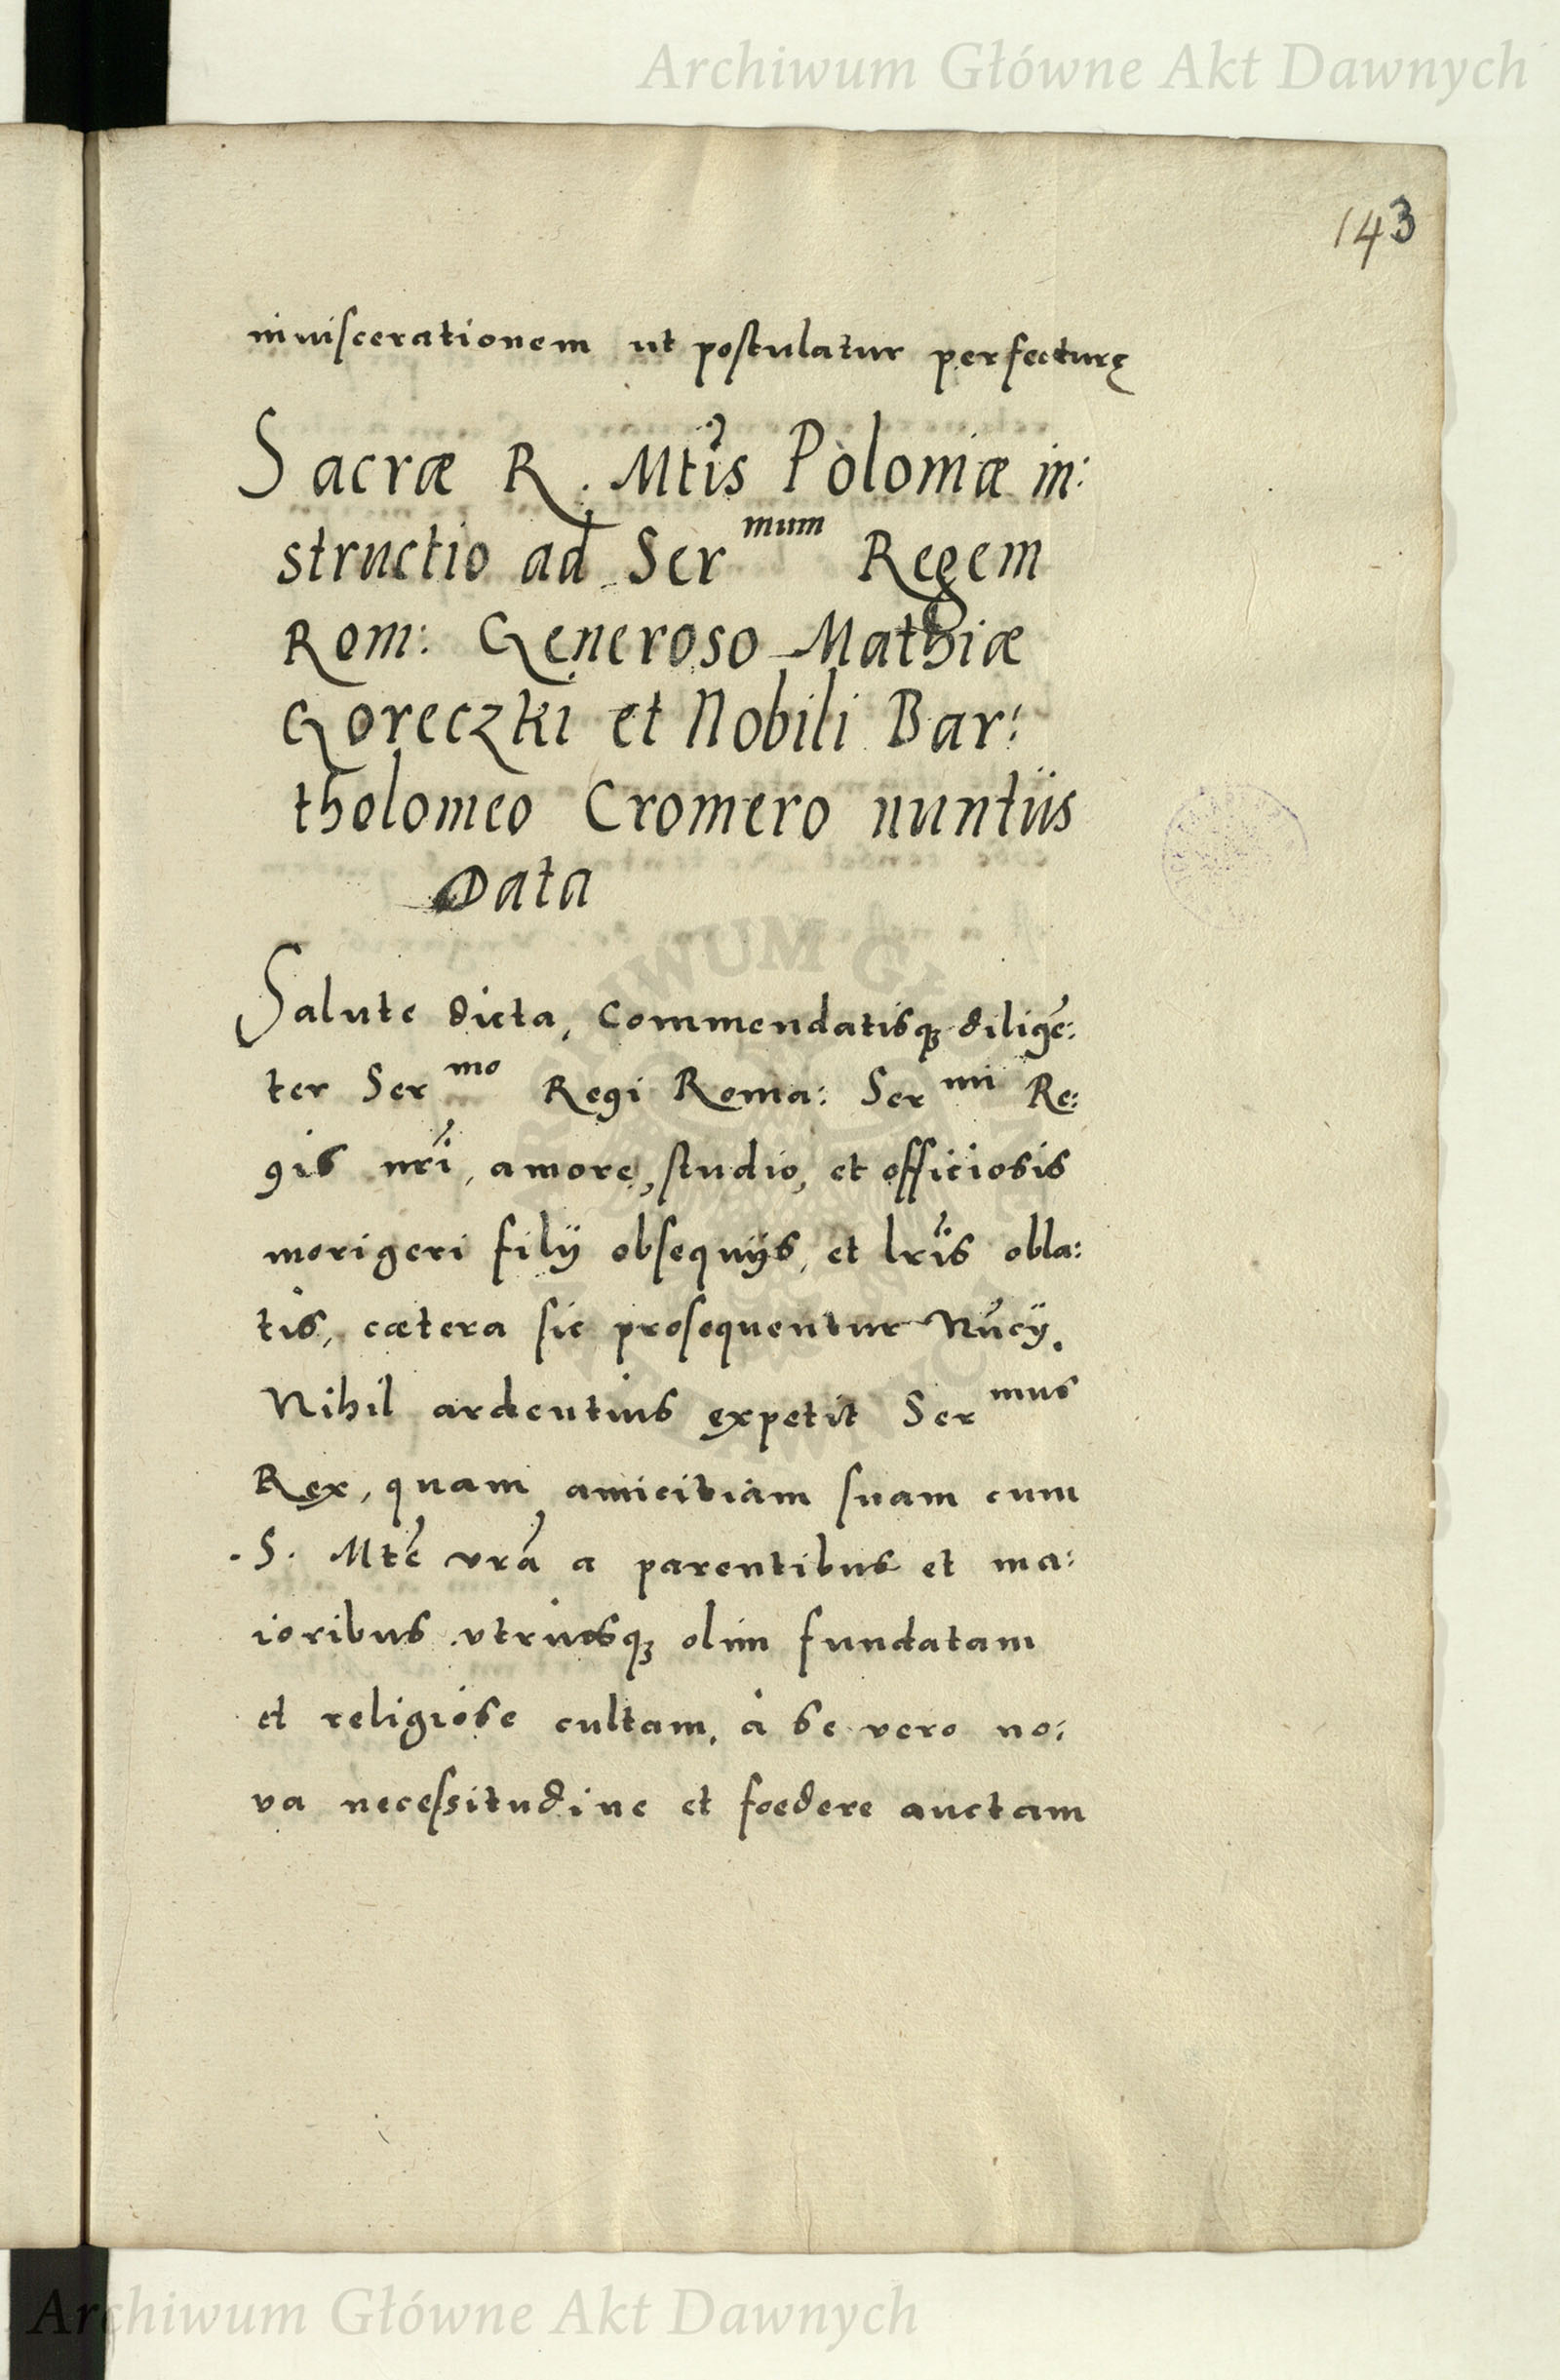 Archiwum Główne Akt Dawnych
143
inviscerationem ut postulatur perfecturę
Sacræ R. Mtis Poloniæ in:
structio ad Ser mum Regem
Rom: Generoso Mathiæ
Goreczki et Nobili Bar:
tholomeo Cromero nuntiis
Data
Salute dicta, Commendatisqȝ diligē:
ter Ser mo Regi Roma: Ser mi Re:
gis nri, amore, studio, et officiosis
morigeri filij obsequijs, et lris obla:
tis, cætera sic prosequentur Nūcij.
Nihil ardentius expetit Ser mus
Rex, quam amicitiam suam cum
.S. Mte vra a parentibus et ma:
ioribus vtriusqȝ olim fundatam
et religiose cultam, à se vero no:
va necessitudine et foedere auctam
Archiwum Główne Akt Dawnych